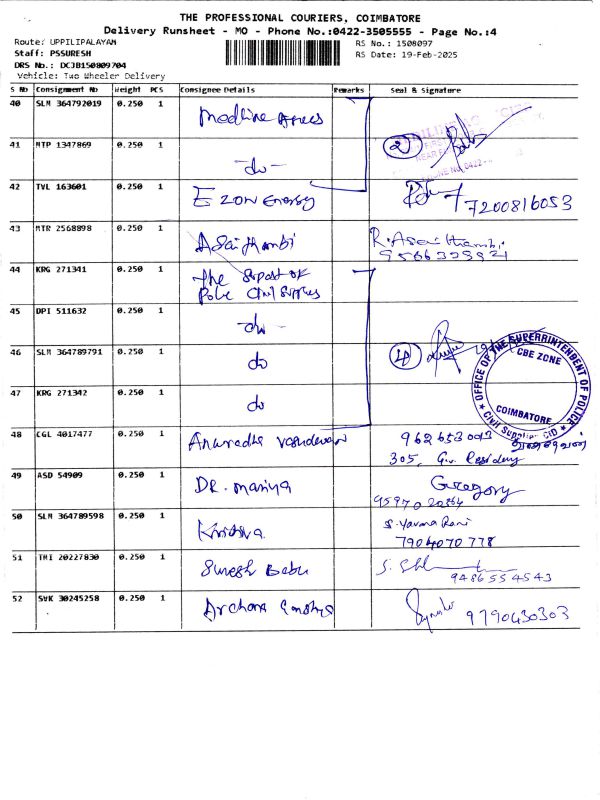 THE PROFESSIONAL COURIERS, COIMBATORE
Delivery Runsheet - MO - Phone No.:0422-3505555 - Page No.:4
Route: UPPILIPALAYAM
RS No.: 1508097
Staff: PSSURESH
RS Date: 19-Feb-2025
DRS No.: DCJB150809704
Vehicle: Two Wheeler Delivery
S No Consignment No Weight PCS Consignee Details Remarks Seal & Signature
40 SLM 364792019 0.250 1 Medline
41 MTP 1347869 0.250 1 -do- 2
42 TVL 163601 0.250 1 E zon Energy 7200816053
43 MTR 2568898 0.250 1 Asaithambi R. Asaithambi
44 KRG 271341 0.250 1 The Supdt of
Police Civil Supplies
45 DPI 511632 0.250 1 -do-
46 SLM 364789791 0.250 1 do 4
OFFICE OF THE SUPERRINTENBENT OF POLICE
CBE ZONE
COIMBATORE
* Civil Supplies CID *
47 KRG 271342 0.250 1 do
48 CGL 4017477 0.250 1 Anuradha Vasudevan
305, Residency
49 ASD 54909 0.250 1 DR. Maniya Gregory
50 SLM 364789598 0.250 1 Krishna
7904070778
51 TMI 20227830 0.250 1 Suresh Babu
9486554543
52 SVK 30245258 0.250 1 Archana 9790430303